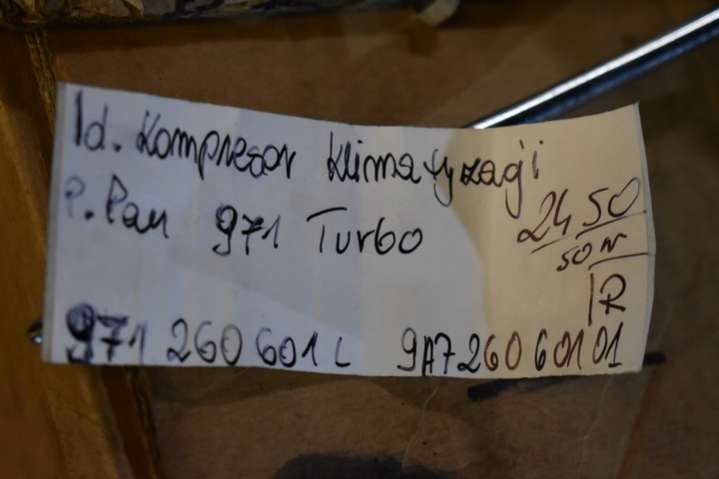 1d. Kompresor klimatyzacji
P. Pan 971 Turbo
2450
50N
1R
971 260 601 L 9A7 260 601 01